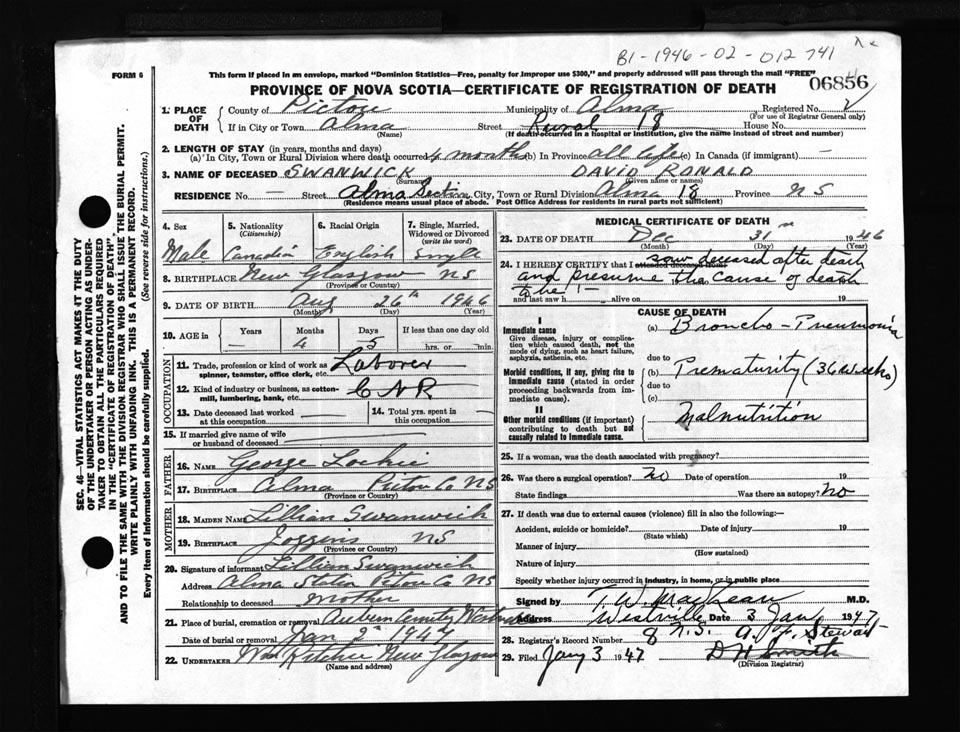 B1-1946-02-012741
FORM 6
This form if placed in an envelope, marked "Dominion Statistics—Free, penalty for improper use $300," and properly addressed will pass through the mail "FREE"
06856
PROVINCE OF NOVA SCOTIA—CERTIFICATE OF REGISTRATION OF DEATH
SEC. 46—VITAL STATISTICS ACT MAKES IT THE DUTY
OF THE UNDERTAKER OR PERSON ACTING AS UNDER-
TAKER TO OBTAIN ALL THE PARTICULARS REQUIRED
IN THE "CERTIFICATE OF REGISTRATION OF DEATH".
AND TO FILE THE SAME WITH THE DIVISION REGISTRAR WHO SHALL ISSUE THE BURIAL PERMIT.
WRITE PLAINLY WITH UNFADING INK. THIS IS A PERMANENT RECORD.
Every item of Information should be carefully supplied. (See reverse side for instructions.)
1. PLACE OF DEATH County of Pictou Municipality of Alma Registered No.
(For use of Registrar General only)
If in City or Town Alma Street Rural 18 House No.
(Name) (If death occurred in a hospital or institution, give the name instead of street and number)
2. LENGTH OF STAY (in years, months and days)
(a) In City, Town or Rural Division where death occurred 4 months (b) In Province all life (c) In Canada (if immigrant) —
3. NAME OF DECEASED SWANWICK DAVID RONALD
(Surname) (Given name or names)
RESIDENCE No. — Street Alma Section City, Town or Rural Division Alma 18 Province NS
(Residence means usual place of abode. Post Office Address for residents in rural parts not sufficient)
4. Sex 5. Nationality (Citizenship) 6. Racial Origin 7. Single, Married, Widowed or Divorced (write the word)
Male Canadian English single
8. BIRTHPLACE New Glasgow NS
(Province or Country)
9. DATE OF BIRTH Aug 26th 1946
(Month) (Day) (Year)
10. AGE in Years Months Days If less than one day
— 4 5 hrs. or min.
OCCUPATION
11. Trade, profession or kind of work as spinner, teamster, office clerk, etc. Laborer
12. Kind of industry or business, as cotton-mill, lumbering, bank, etc. CNR
13. Date deceased last worked at this occupation 14. Total yrs. spent in this occupation
15. If married give name of wife or husband of deceased
FATHER
16. NAME George Lochie
17. BIRTHPLACE Alma Pictou Co NS
(Province or Country)
MOTHER
18. MAIDEN NAME Lillian Swanwick
19. BIRTHPLACE Joggins NS
(Province or Country)
20. Signature of informant Lillian Swanwick
Address Alma Station Pictou Co NS
Relationship to deceased Mother
21. Place of burial, cremation or removal Auburn Cemetry
Date of burial or removal Jan 2nd 1947
22. UNDERTAKER New Glasgow
(Name and address)
MEDICAL CERTIFICATE OF DEATH
23. DATE OF DEATH Dec 31st 1946
(Month) (Day) (Year)
24. I HEREBY CERTIFY that I attended deceased from saw deceased after death
and presume the cause of death
to be :—
and last saw h alive on 19
CAUSE OF DEATH
I
Immediate cause
Give disease, injury or complication which caused death, not the mode of dying, such as heart failure, asphyxia, asthenia, etc.
(a) Broncho-Pneumonia
due to
Morbid conditions, if any, giving rise to immediate cause (stated in order proceeding backwards from immediate cause).
(b) Prematurity (36 weeks)
due to
(c)
II
Other morbid conditions (if important) contributing to death but not causally related to immediate cause.
Malnutrition
25. If a woman, was the death associated with pregnancy?
26. Was there a surgical operation? No Date of operation 19
State findings Was there an autopsy? No
27. If death was due to external causes (violence) fill in also the following:—
Accident, suicide or homicide? Date of injury 19
(State which)
Manner of injury
(How sustained)
Nature of injury
Specify whether injury occurred in industry, in home, or in public place
Signed by M.D.
Address Westville Date 3 Jan 1947
28. Registrar's Record Number 8 N.S. A. F. Stewart
29. Filed Jany 3 1947 D H Smith
(Division Registrar)